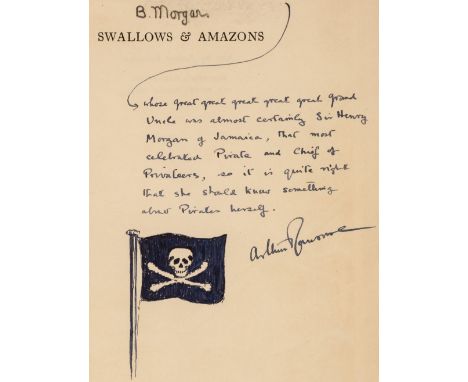 B. Morgan.
SWALLOWS & AMAZONS
whose great great great great great grand
Uncle was almost certainly Sir Henry
Morgan of Jamaica, that most
celebrated Pirate and Chief of
Privateers, so it is quite right
that she should know something
about Pirates herself.
Arthur Ransome